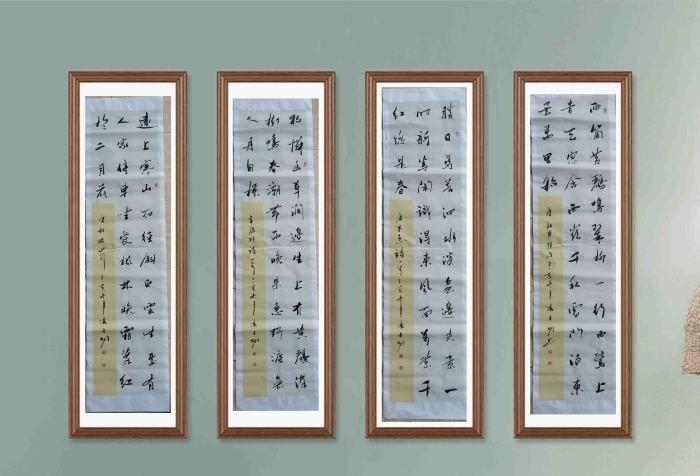 两箇黄鸝鳴翠柳一行白鷺上
青天窗含西嶺千秋雪門泊東
吴萬里船
勝日尋芳泗水濱無邊光景一
時新等閑識得東風面萬紫千
紅總是春
独憐幽草澗邊生上有黄鸝深
樹鳴春潮帶雨晚來急野渡無
人舟自横
遠上寒山石径斜白雲生處有
人家停車坐愛楓林晚霜葉紅
於二月花